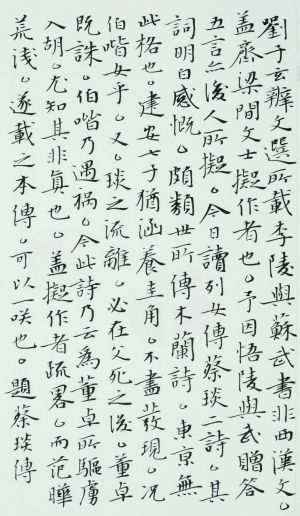 劉子玄辨文選所載李陵與蘇武書非西漢文。
盖齊梁間文士擬作者也。予因悟陵與武贈答
五言亦後人所擬。今日讀列女傳蔡琰二詩。其
詞明白感慨。頗類世所傳木蘭詩。東京無
此格也。建安七子猶涵養圭角。不盡發現。況
伯喈女乎。又琰之流離。必在父死之後。董卓
既誅。伯喈乃遇禍。今此詩乃云爲董卓所驅虜
入胡。尤知其非眞也。盖擬作者疏畧。而范曄
荒淺。遂載之本傳。可以一咲也。題蔡琰傳